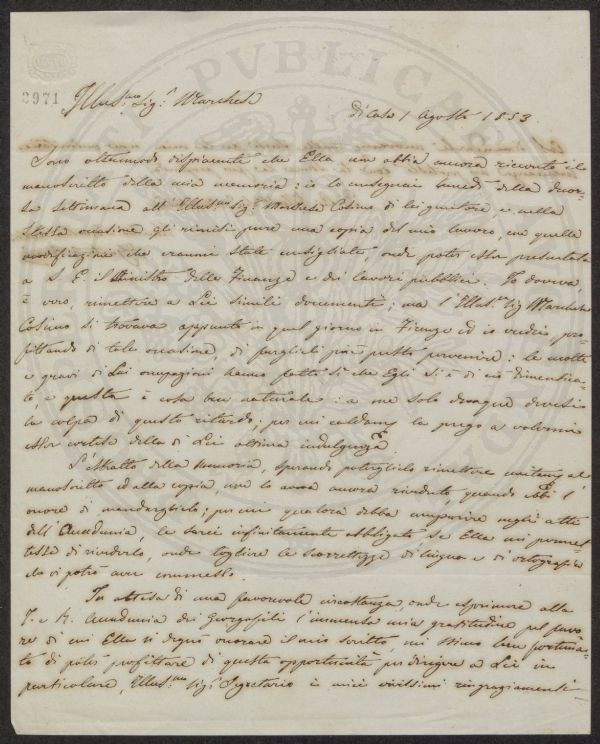 2971
Illus.mo Sig.r Marchese
Di Casa 1 Agosto 1853
Sono oltremodo dispiacente che Ella non abbia ancora ricevuto il
manoscritto della mia memoria: io lo consegnai lunedì della decor-
sa settimana all'Illus.mo Sig.r Marchese Cosimo di lei genitore, e nella
stessa occasione gli rimisi pure una copia del mio lavoro, con quelle
modificazioni che vennemi state consigliate, onde poter esser presentata
a S. E. il Ministro delle Finanze e dei lavori pubblici. Io doveva,
è vero, rimettere a Lei simili documenti; ma l'Illus.mo Sig Marchese
Cosimo si trovava appunto in quel giorno in Firenze ed io credei, pro-
fittando di tale occasione, di farglieli più presto pervenire: le molte
e gravi di Lui occupazioni hanno fatto sì che Egli si è di ciò dimentica-
to, e questa è cosa ben naturale: a me solo dunque devesi
la colpa di questo ritardo, per cui caldam.e la prego a volermi
esser cortese della di Lei altima indulgenza.
L'Estratto della memoria, sperando potergliela rimettere unitam.e al
manoscritto ed alla copia, non lo aveva ancora riveduto, quando ebbi l'
onore di mandarglielo; per cui qualora debba comparire negli atti
dell'Accademia, le sarei infinitamente obbligato se Ella mi permet-
tesse di rivederlo, onde togliere le scorrettezze di lingua e di ortografia
che vi potrò aver commesse.
In attesa di una favorevole circostanza, onde esprimere alla
I. e R. Accademia dei Georgofili l'immensa mia gratitudine pel favo-
re di cui Ella si degnò onorare il mio scritto, mi stimo ben fortuna-
to di poter profittare di questa opportunità per dirigere a Lei in
particolare, Illus.mo Sig.r Segretario i miei vivissimi ringraziamenti